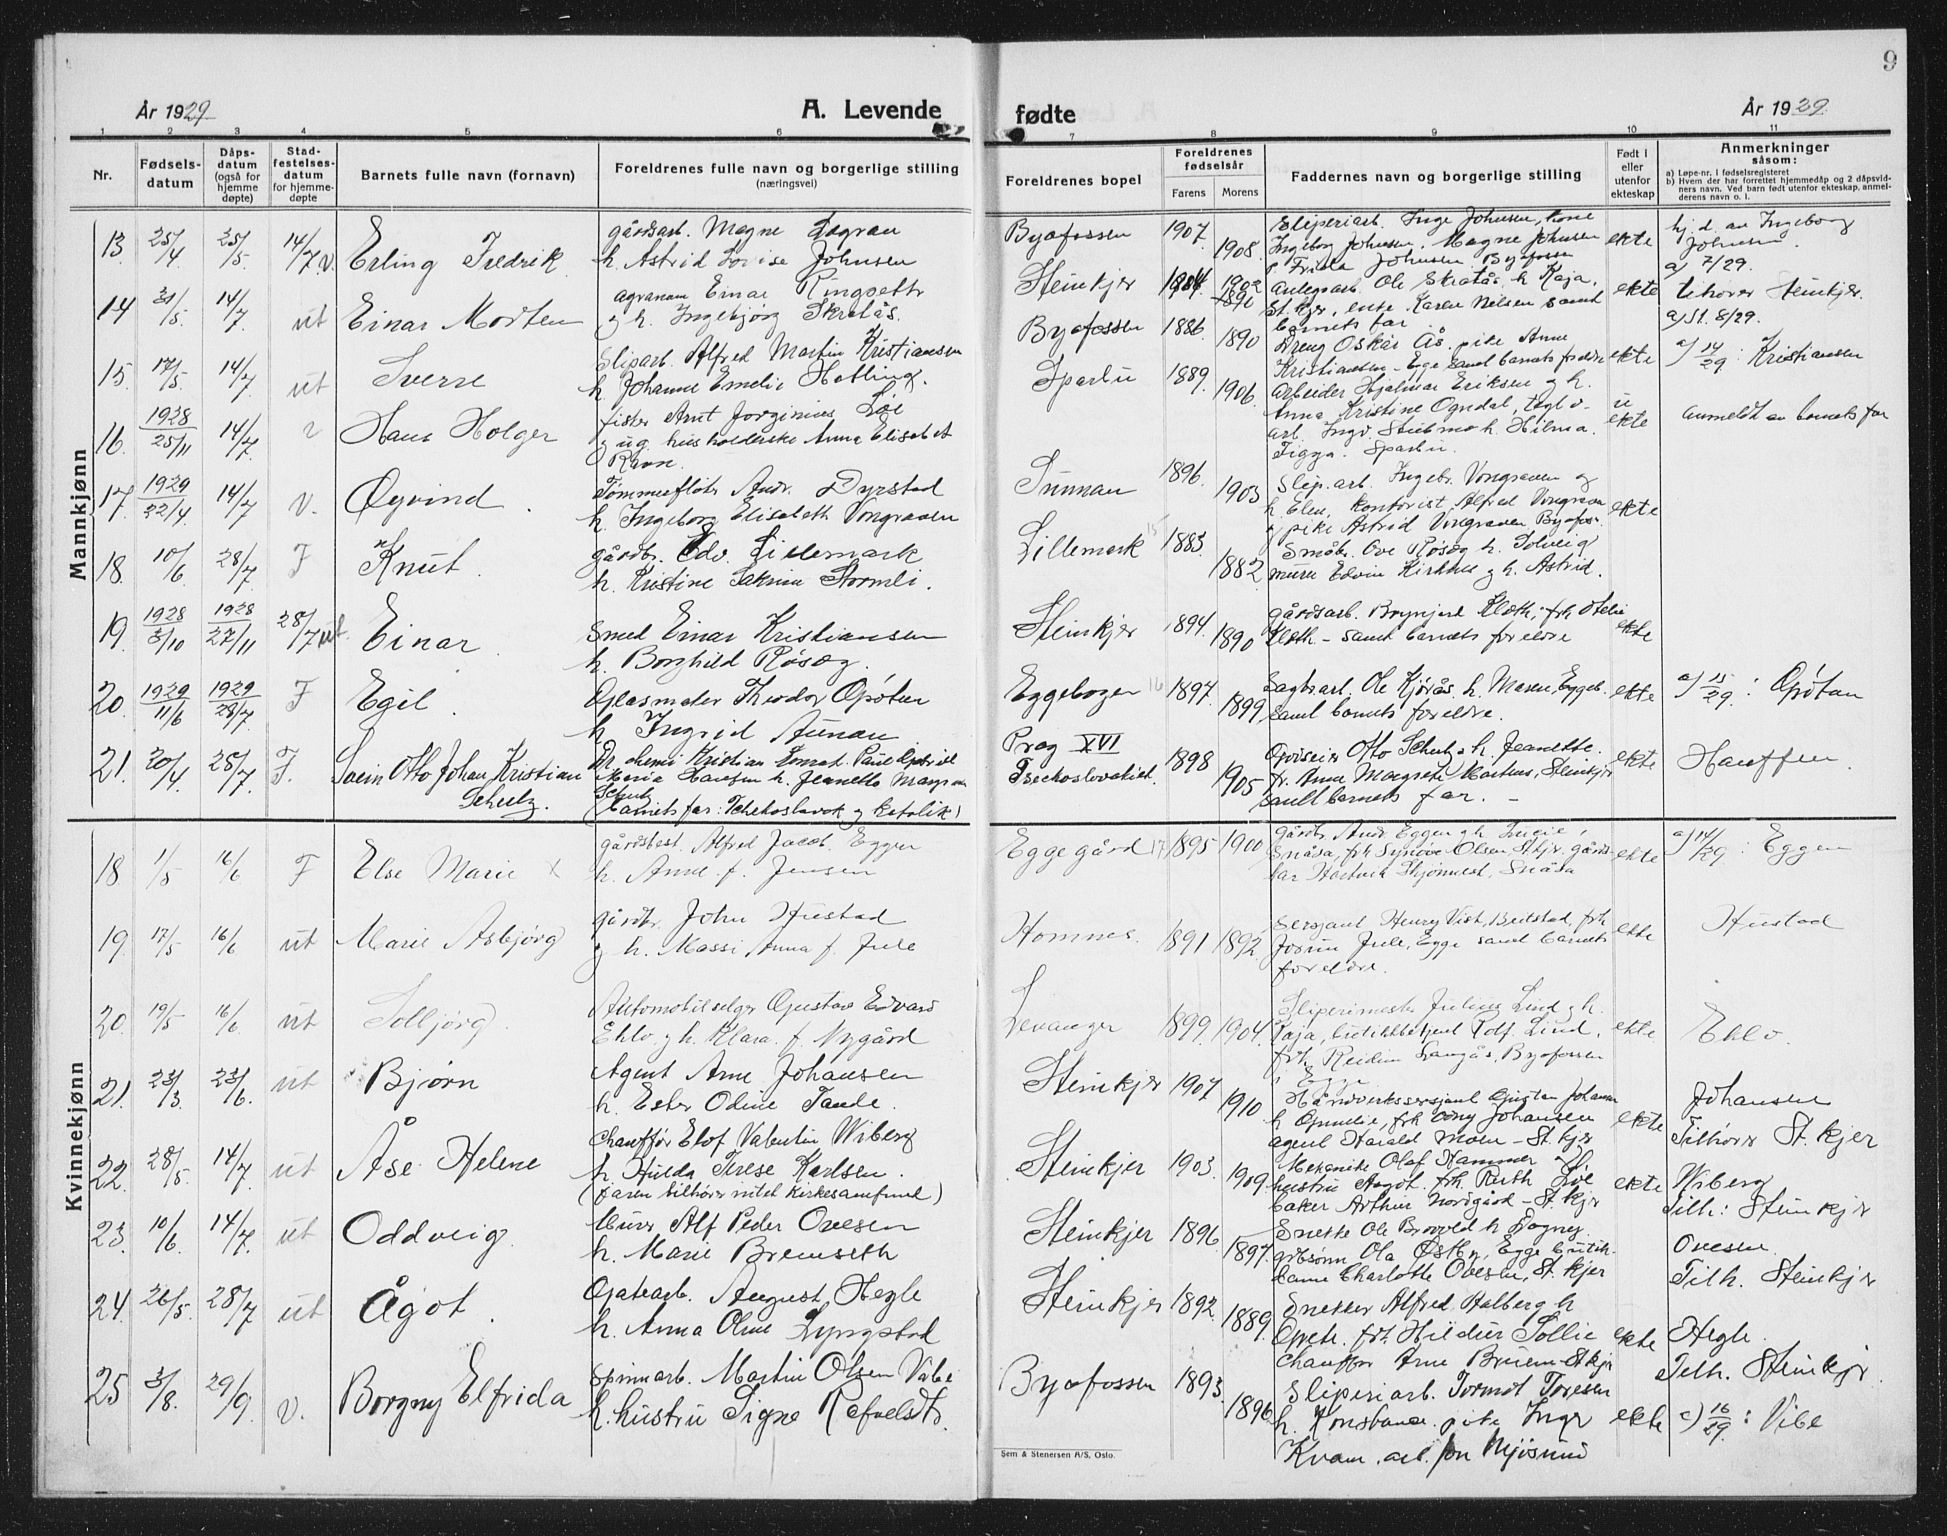 År 1929
A. Levende
1 2 3 4 5 6
Nr.
Fødsels-
datum
Dåps-
datum
(også for
hjemme
døpte)
Stad-
festelses-
datum
for hjemme-
døpte
Barnets fulle navn (fornavn)
Foreldrenes fulle navn og borgerlige stilling
(næringsvei)
Mannkjønn
13 25/4 25/5 14/7 v. Erling Fredrik
gårdsarb. Magne
h. Astrid Lovise Johnsen
14 /5 14/7 ut Einar Morten
agronom Einar Ringseth
g h. Ingebjørg Skratås.
15. 17/5 14/7 ut Sverre
Sliparb. Alfred Martin Kristiansen
h. Johanne Emelie Hatling.
16. 1928 25/11 14/7 Hans Holger
fisker Arnt Jørginius Løe
g ug. husholderske Anna Elisabet
Ravn.
17. 1929 22/4 14/7 v. Øyvind.
Tømmerfløt. Andr. Dyrstad
h. Ingeborg Elisabeth Vongraven
18. 10/6 28/7 F Knut.
gårdbr. Edv. Lillemark
h. Kristine Stormli.
19. 1928 3/10 1928 27/11 28/7 ut Einar
Smed Einar Kristiansen
h. Borghild Røsæg.
20. 1929 11/6 1929 28/7 F Egil.
Glasmeter Theodor
h Ingrid Aunan
21. 20/4 28/7 F. Otto Johan Kristian
Schulz.
Dr. chemi Kristian
Maria h. Jeanette
Schulz
(barnets far: Tchekoslovak og katolik)
Kvinnekjønn
18 1/5 16/6 F Else Marie x
gårdbest. Alfred Jacob. Eggen
h. Anne f. Jensen
19. 17/5 16/6 ut Marie Asbjørg
gårdbr. John Hustad
g h. Massi Anna f. Jule
20. 19/5 16/6 ut Solbjørg.
Automobilselger Gustav Edvard
Ehlo g h. Klara f. Nygård
21. 23/3 23/6. ut Bjørn
Agent Arne Johansen
h. Ester Odine Taule.
22. 28/5. 14/7. ut Åse Helene
Chauffør Elof Valentin Wiberg
h. Hulda Terese Karlsen.
(faren tilhører intet kirkesamfund)
23. 10/6 14/7. ut Oddveig.
Murer Alf Peder Ovesen
h. Marie Bremseth
24. 26/5. 28/7 ut Ågot.
Gatearb. August Hegle
h. Anna Oline Lyngstad
25 3/8. 29/9. v. Borgny Elfrida
spinnarb. Martin Olsen Vibe
h. hustru Signe
9
fødte
År 1929.
7 8 9 10 11
Foreldrenes bopel
Foreldrenes
fødselsår
Farens Morens
Faddernes navn og borgerlige stilling
Født i
eller
utenfor
ekteskap
Anmerkninger
såsom:
a) Løpe-nr. i fødselsregisteret
b) Hvem der har forrettet hjemmedåp og 2 dåpsvid-
ners navn. Ved barn født utenfor ekteskap, anmel-
derens navn o. l.
Byafossen 1907. 1908.
Sliperiarb. Inge Johnsen, kone
Ingeborg Johnsen. Magne Johnsen
p. Frida Johnsen Byafossen
ekte
hj. d. av Ingeborg
Johnsen.
a) 7/29.
Steinkjer 1902
anlegsarb. Ole Skratås h. Kaja,
St.kjer, enke Karen Nilsen samt
barnets far.
ekte
tilhører Steinkjer.
a) St. 8/29.
Byafossen 1886 1890
Dreng Oskar Ås, pike Anne
Kristiansen - Egge samt barnets foreldre
ekte
a) 14/29: Kristiansen
Sparbu 1889. 1906.
Arbeider Hjalmar Eriksen g h.
Anna Kristine Ogndal, tegl v-
arb. Ingv. Stubmo h. Hilma.
Sparbu.
u
ekte
Anmeldt av barnets far
Sunnan 1896. 1903
Slip.arb. Ingebr. Vongraven og
h. Elen, kontorist Alfred Vongraven
g pike Astrid Vongraven Byafos-
ekte
Lillemark 15 1883. 1882
Småbr. Ove Røsæg h. Solveig
murer Edvin Kirkhus g h. Astrid.
Steinkjer 1894. 1890
gårdsarb. Brynjart Kloth, frk Otelie
Kloth - samt barnets foreldre
ekte
Eggebogen 16 1897. 1899
Sagbr.arb. Ole Kjørås h. Maren, Eggeb.
samt barnets foreldre.
ekte
a) 15/29:
Prag XVI
Tsechoslovakiet. 1898 1905
Otto Schulz h. Jeanette.
fr. Anne Margrete Steinkjer
samt barnets far. -
ekte
Hauffen
Eggegård 17 1895 1900
gårdbr. Andr. Eggen g h.
Snåsa, frk Synøve Olsen, St.kjr. gårds-
Snåsa
ekte
a) 14/29: Eggen
Homnes. 1891 1892
Sersjant Henry Vist, Beitstad, frk
Jule, Egge samt barnets
foreldre.
ekte
Hustad
Levanger 1899. 1904.
Sliperimester Julius Lind g h.
Kaja, butikkbetjent Rolf Lind,
frk Reidun Langås, Byafossen
ekte
Ehlo.
Steinkjer 1907 1910
i Egge
Håndverkssersjant Gustav Johansen
h Gunelie, frk Johansen
agent Harald Moen - St.kjr
ekte
Johansen
Tilhører St.kjer
Steinkjer 1903. 1909.
Mekanike Olaf Hammer og
hustru Aagot. frk. Ruth Løe
baker Arthur Nordgård - St.kjr
ekte
Wiberg
Tilh: Steinkjer
Steinkjer 1896. 1897.
Snekke Ole h Dagny
Ola Østby, Egge butik-
dame Charlotte Ovesen, St.kjer
Ovesen
Tilh. Steinkjer
Steinkjer 1892. 1889.
Snekker Alfred Halberg h
frk. Hildur Sollie
Chauffør Arne Bruem - St.kjr
ekte
Hegle.
Tilh. Steinkjr.
Byafossen 1893. 1896
Sliperiarb. Tormod Toresen
h. Konstance. pike Inger
Kvam. arb. Jon Mjøsund
ekte
a) 16/29: Vibe
Sem & Stenersen A/S, Oslo.